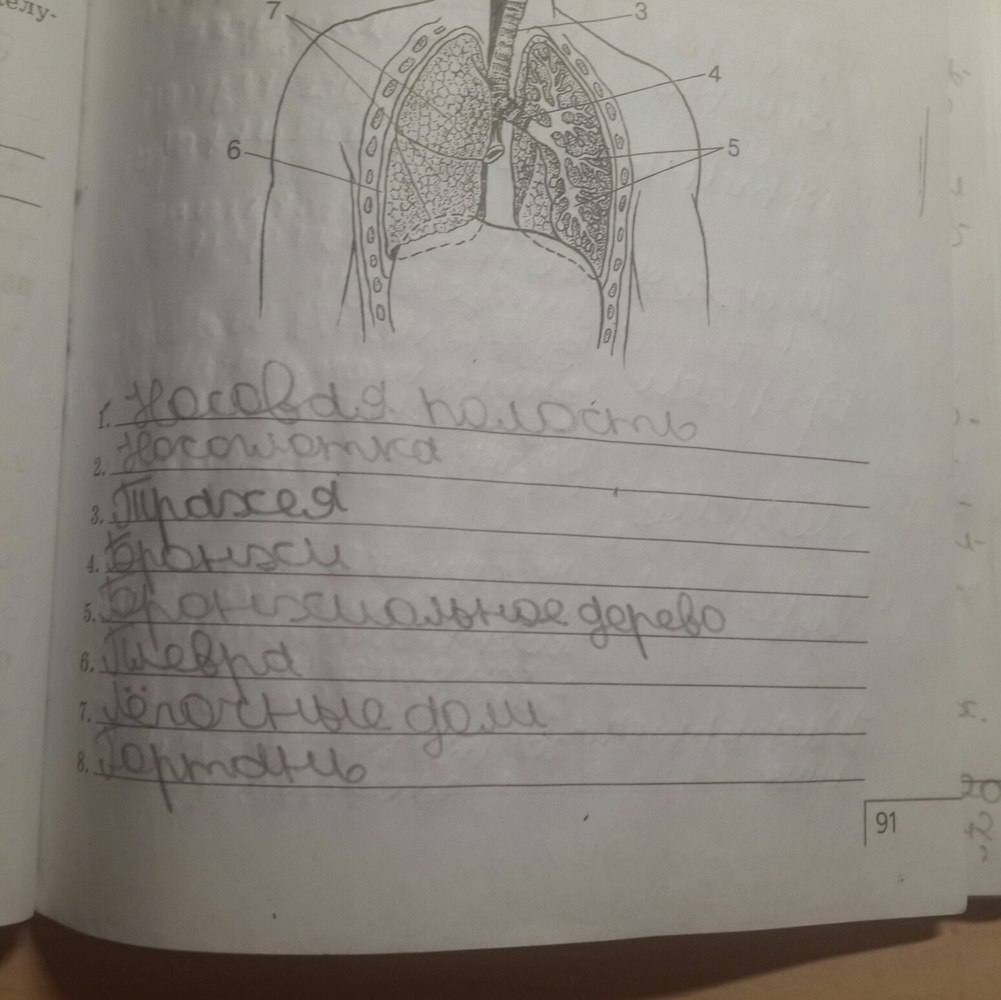 елу-
7
3
4
6
5
1. Носовая полость
2. Носоглотка
3. Трахея
4. Бронхи
5. Бронхиальное дерево
6. Плевра
7. Лёгочные доли
8. Гортань
91